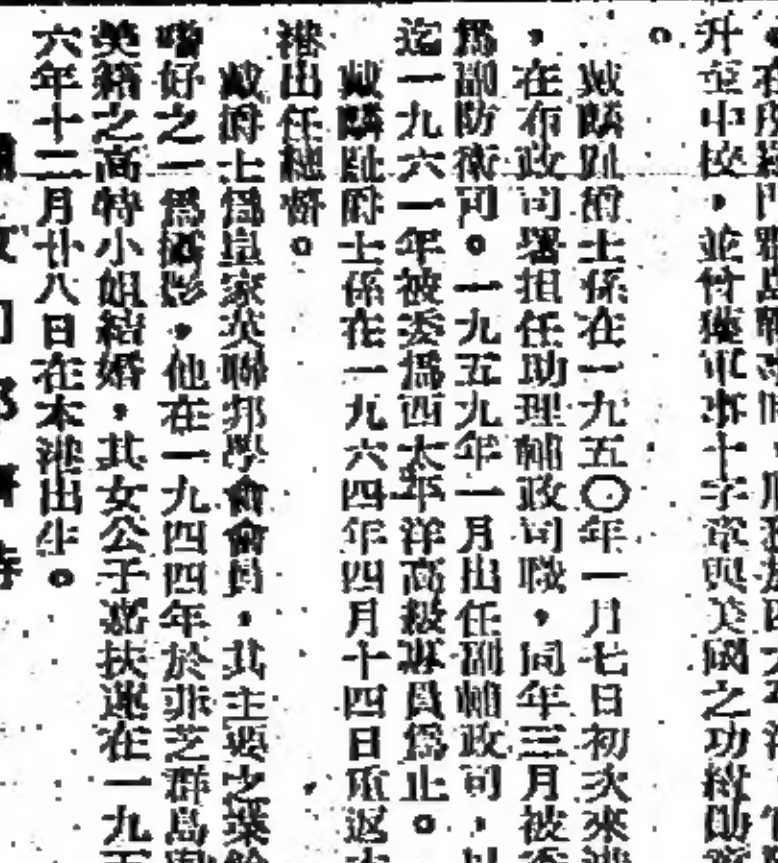 升至中校，並曾獲軍事十字章與美國之功績勛章
。
戴麟趾爵士係在一九五〇年一月七日初次來港
，在布政司署担任助理輔政司職，同年三月被委
為副防衛司。一九五九年一月出任副輔政司，以
迄一九六一年被委爲西太平洋高級專員爲止。
戴麟趾爵士係在一九六四年四月十四日重返本
港出任總督。
戴爵士爲皇家英聯邦學會會員，其主要之業餘
嗜好之一爲攝影，他在一九四四年於菲芝群島與
美籍之高特小姐結婚，其女公子嘉扶連在一九五
六年十二月廿八日在本港出生。